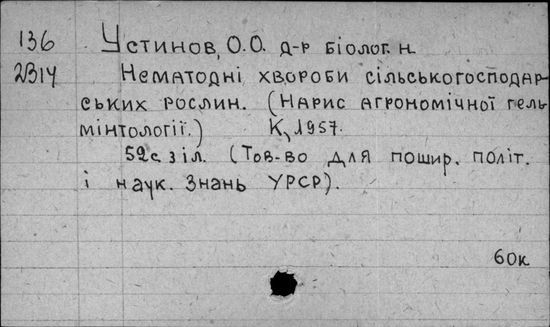 136 Устинов, О.О. д-р біолог. н.
2В14 Нематодні хвороби сільськогосподар-
ських рослин. (Нарис агрономічної гель-
мінтології.) К, 1957.
52с. з іл. (Тов-во для пошир. політ.
і наук. Знань УРСР).
60к